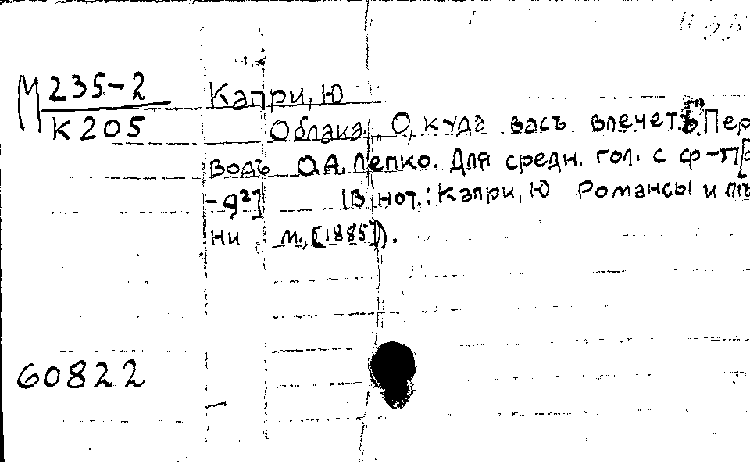 М 235-2
К 205
Капри, Ю
Облака. О, куда васъ влечетъ. Пер
водъ О.А. Лепко. Для средн. гол. с ф-п[
-д2] (В нот.: Капри, Ю Романсы и пѣ
ни М., [1885]).
60822